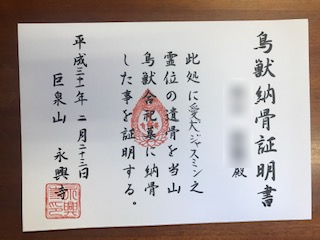 鳥獣納骨証明書
殿
此処に愛犬ジャスミン之
霊位の遺骨を当山
鳥獣合祀墓に納骨
した事を証明する。
平成三十一年二月二十三日
巨泉山 永興寺